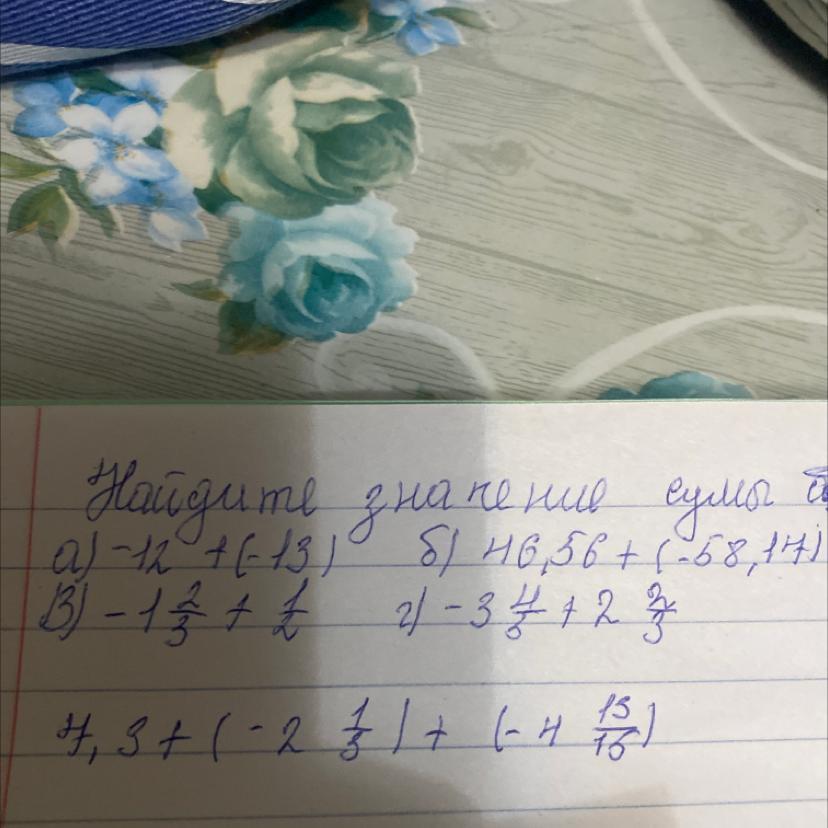 Найдите значение сумы
а) -12 + (-13) б) 46,56 + (-58,17)
В) -1 2/3 + 1/2 г) -3 4/5 + 2 2/3
7,3 + (-2 1/3) + (-4 13/15)